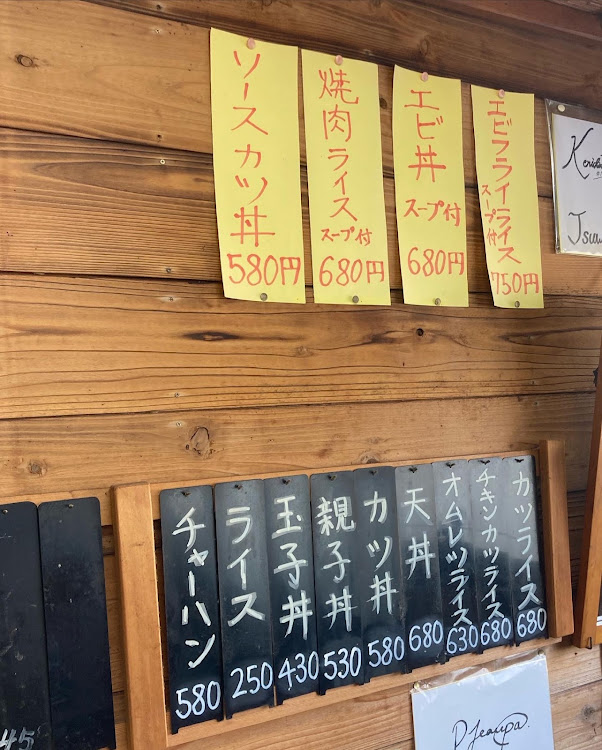 ソースカツ丼
580円
焼肉ライス
スープ付
680円
エビ丼
スープ付
680円
エビフライライス
スープ付
750円
チャーハン
580
ライス
250
玉子丼
430
親子丼
530
カツ丼
580
天丼
680
オムレツライス
630
チキンカツライス
680
カツライス
680
45